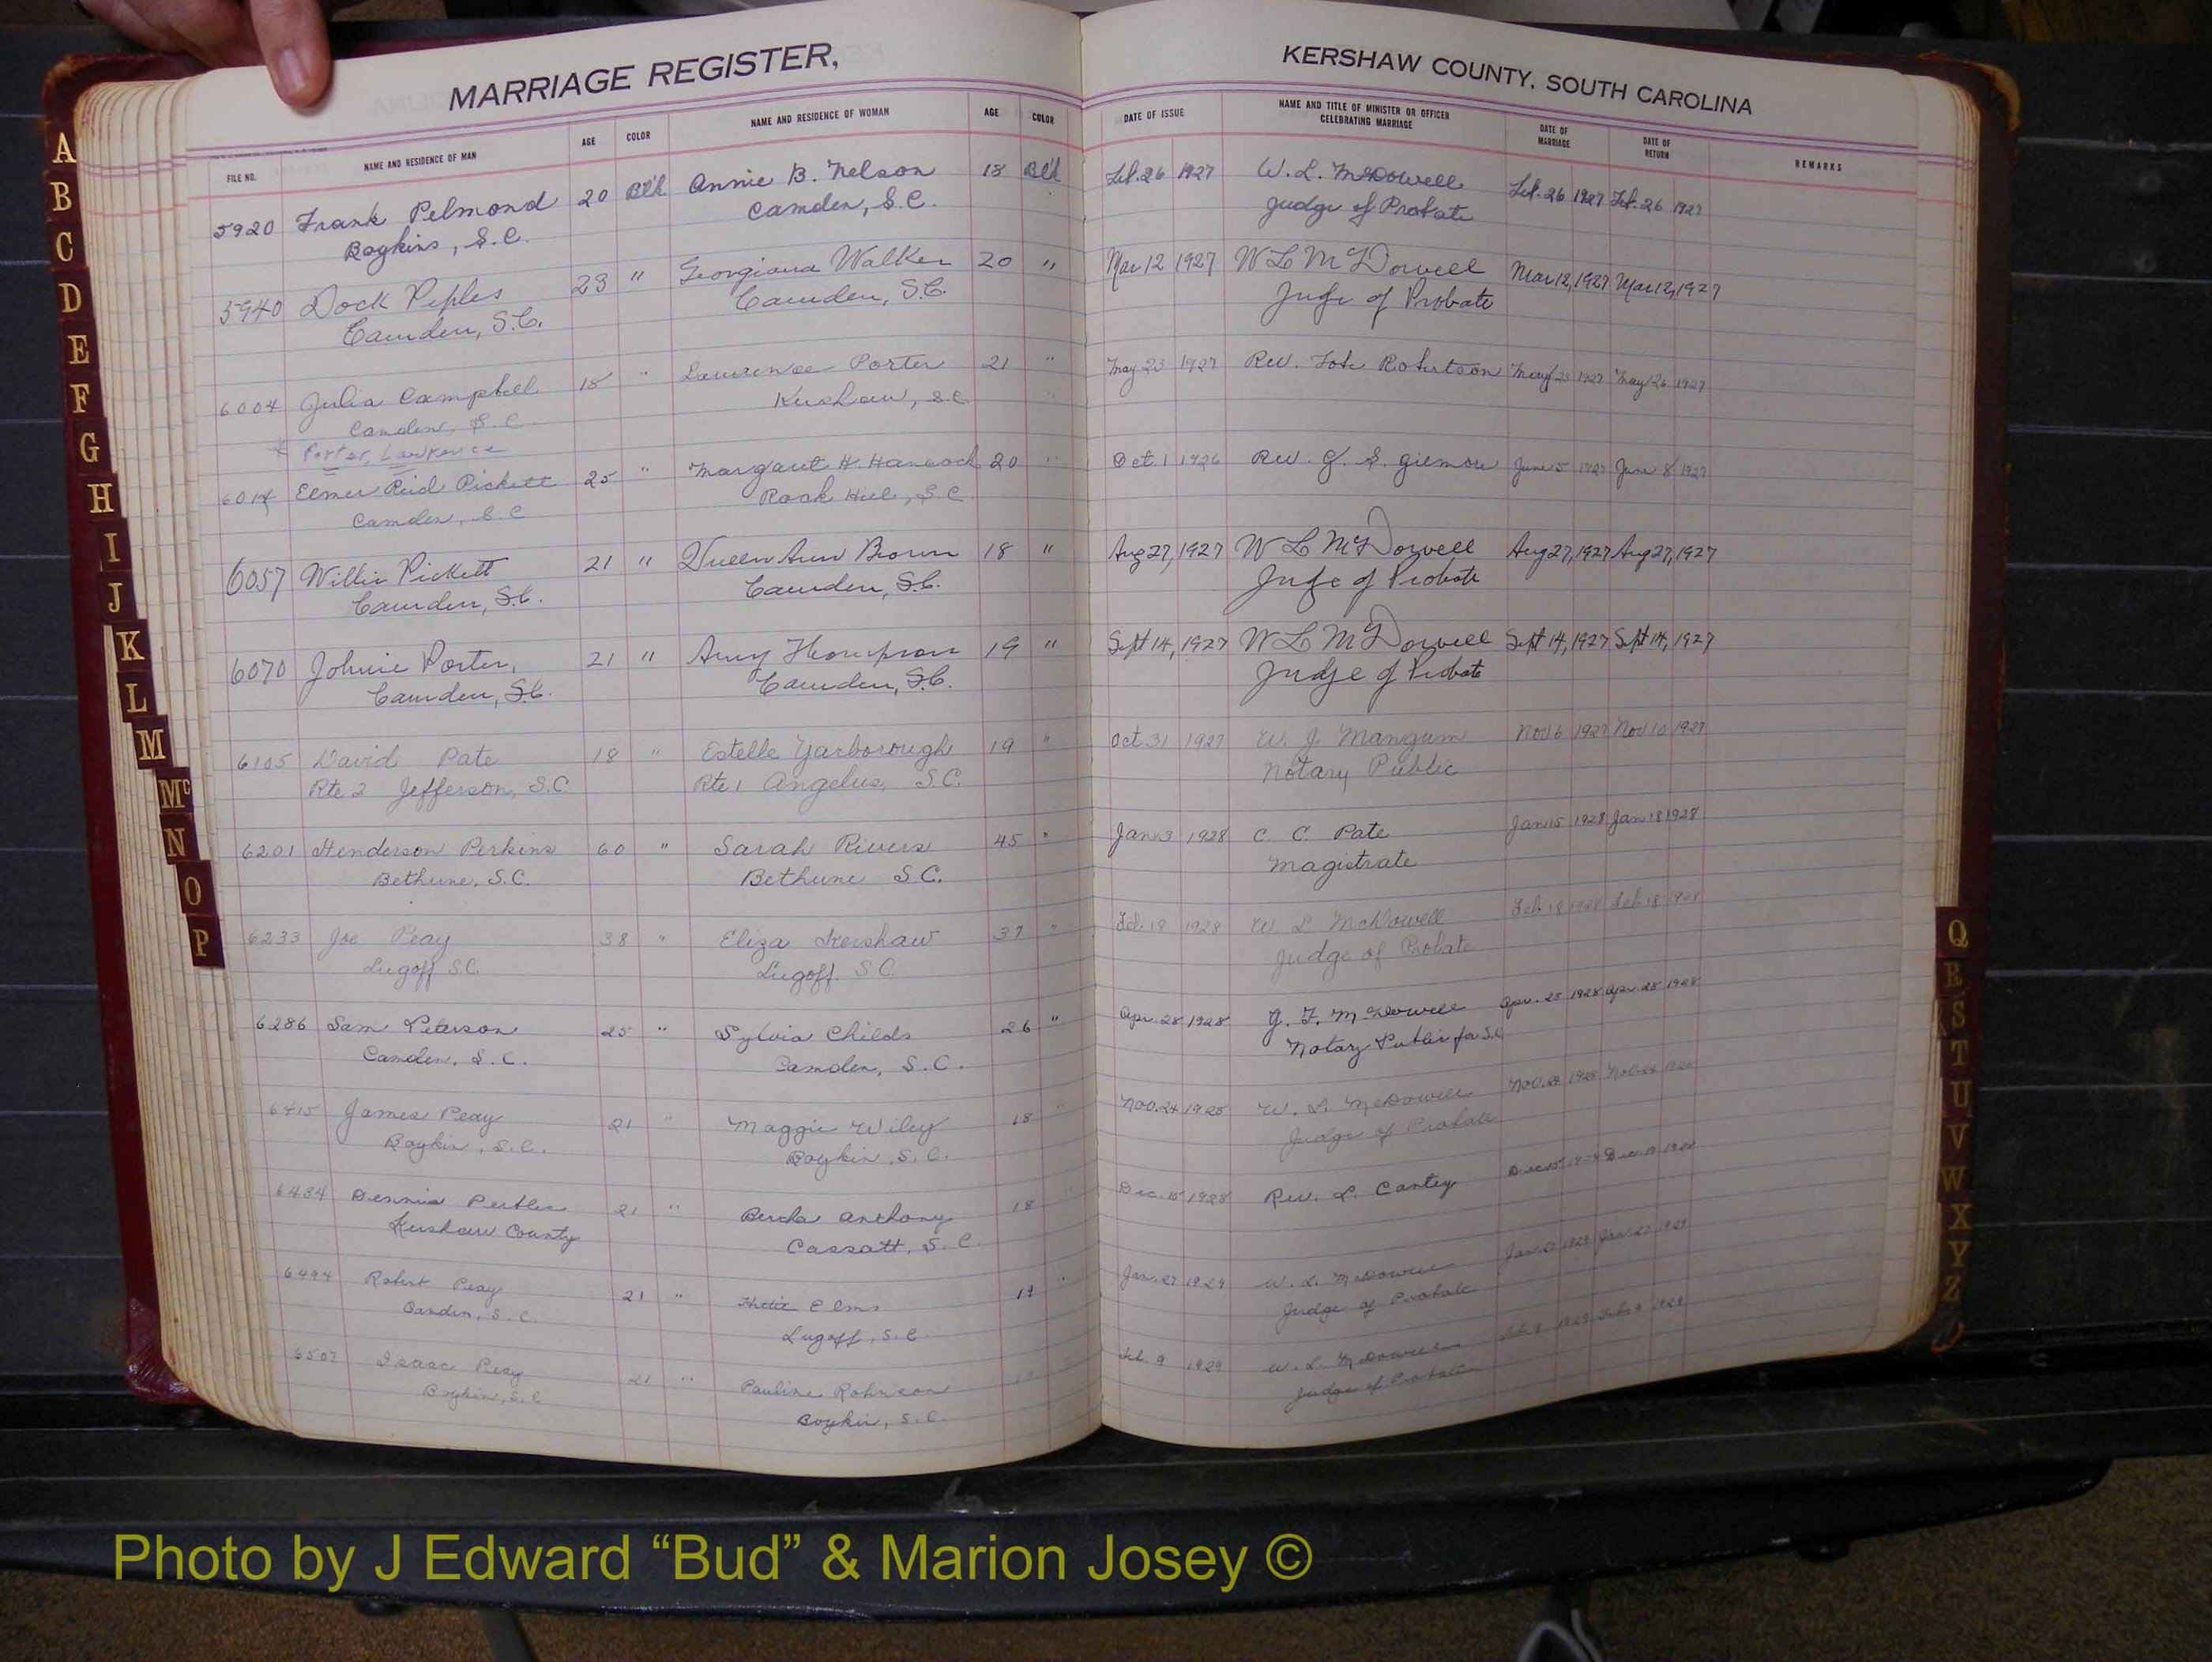 MARRIAGE REGISTER,
KERSHAW COUNTY, SOUTH CAROLINA
FILE NO. NAME AND RESIDENCE OF MAN AGE COLOR NAME AND RESIDENCE OF WOMAN AGE COLOR DATE OF ISSUE NAME AND TITLE OF MINISTER OR OFFICER CELEBRATING MARRIAGE DATE OF MARRIAGE DATE OF RETURN REMARKS
5920 Frank Pelmond 20 Blk Annie B. Nelson 18 Blk Feb. 26 1927 W. L. McDowell Feb. 26 1927 Feb. 26 1927
Boykins, S.C. Camden, S.C. Judge of Probate
5940 Dock Peples 23 " Georgiana Walker 20 " Mar 12 1927 W L McDowell Mar 12, 1927 Mar 12, 1927
Camden, S.C. Camden, S.C. Judge of Probate
6004 Julia Campbell 18 " Lawrence Porter 21 " May 23 1927 Rev. Robertson May 23 1927 May 26 1927
Camden, S.C. Kershaw, S.C.
* Porter, Lawrence
6014 Elmer Reid Pickett 25 " Margaret H. Hancock 20 " Oct. 1 1926 Rev. G. S. Gilmore June 5 1927 June 8 1927
Camden, S.C. Rock Hill, S.C.
6057 Willie Pickett 21 " Queen Ann Brown 18 " Aug 27, 1927 W L McDowell Aug 27, 1927 Aug 27, 1927
Camden, S.C. Camden, S.C. Judge of Probate
6070 Johnie Porter, 21 " Amy Thompson 19 " Sept 14, 1927 W L McDowell Sept 14, 1927 Sept 14, 1927
Camden, S.C. Camden, S.C. Judge of Probate
6105 David Pate 18 " Estelle Yarborough 19 " Oct. 31 1927 W. J. Mangum Nov 6 1927 Nov 10 1927
Rte 2 Jefferson, S.C. Rte 1 Angelus, S.C. Notary Public
6201 Henderson Perkins 60 " Sarah Rivers 45 " Jan 13 1928 C. C. Pate Jan 15 1928 Jan 18 1928
Bethune, S.C. Bethune S.C. Magistrate
6233 Joe Peay 38 " Eliza Kershaw 37 " Feb. 18 1928 W. L McDowell Feb. 18 1928 Feb. 18 1928
Lugoff S.C. Lugoff. S.C. Judge of Probate
6286 Sam Peterson 25 " Sylvia Childs 26 " Apr. 28 1928 G. F. McDowell Apr. 28 1928 Apr. 28 1928
Camden, S.C. Camden, S.C. Notary Public for S.C.
6415 James Peay 21 " Maggie Wiley 18 " Nov. 24 1928 W. L. McDowell Nov. 24 1928 Nov. 24 1928
Boykin, S.C. Boykin, S.C. Judge of Probate
6434 Dennis 21 " Anthony 18 " Dec. 15 1928 Rev. L. Cantey Dec. 15 1928 Dec. 19 1928
Kershaw County Cassatt, S.C.
6494 Robert Peay 21 " Elms 19 " Jan. 27 1929 W. L. McDowell Jan. 27 1929 Jan. 27 1929
Camden, S.C. Lugoff, S.C. Judge of Probate
6507 Isaac Peay 21 " Pauline Robinson Feb. 9 1929 W. L. McDowell Feb. 9 1929 Feb. 9 1929
Boykin, S.C. Boykin, S.C. Judge of Probate
A
B
C
D
E
F
G
H
I
J
K
L
M
Mc
N
O
P
Q
R
S
T
U
V
W
X
Y
Z
Photo by J Edward “Bud” & Marion Josey ©